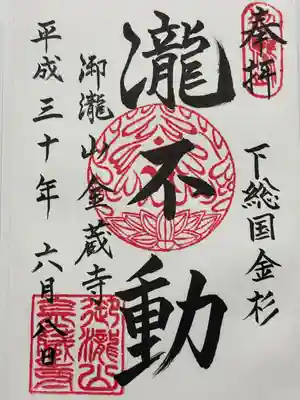 奉拝
下総国金杉
瀧不動
御瀧山金蔵寺
平成三十年 六月八日
御瀧山
金蔵寺